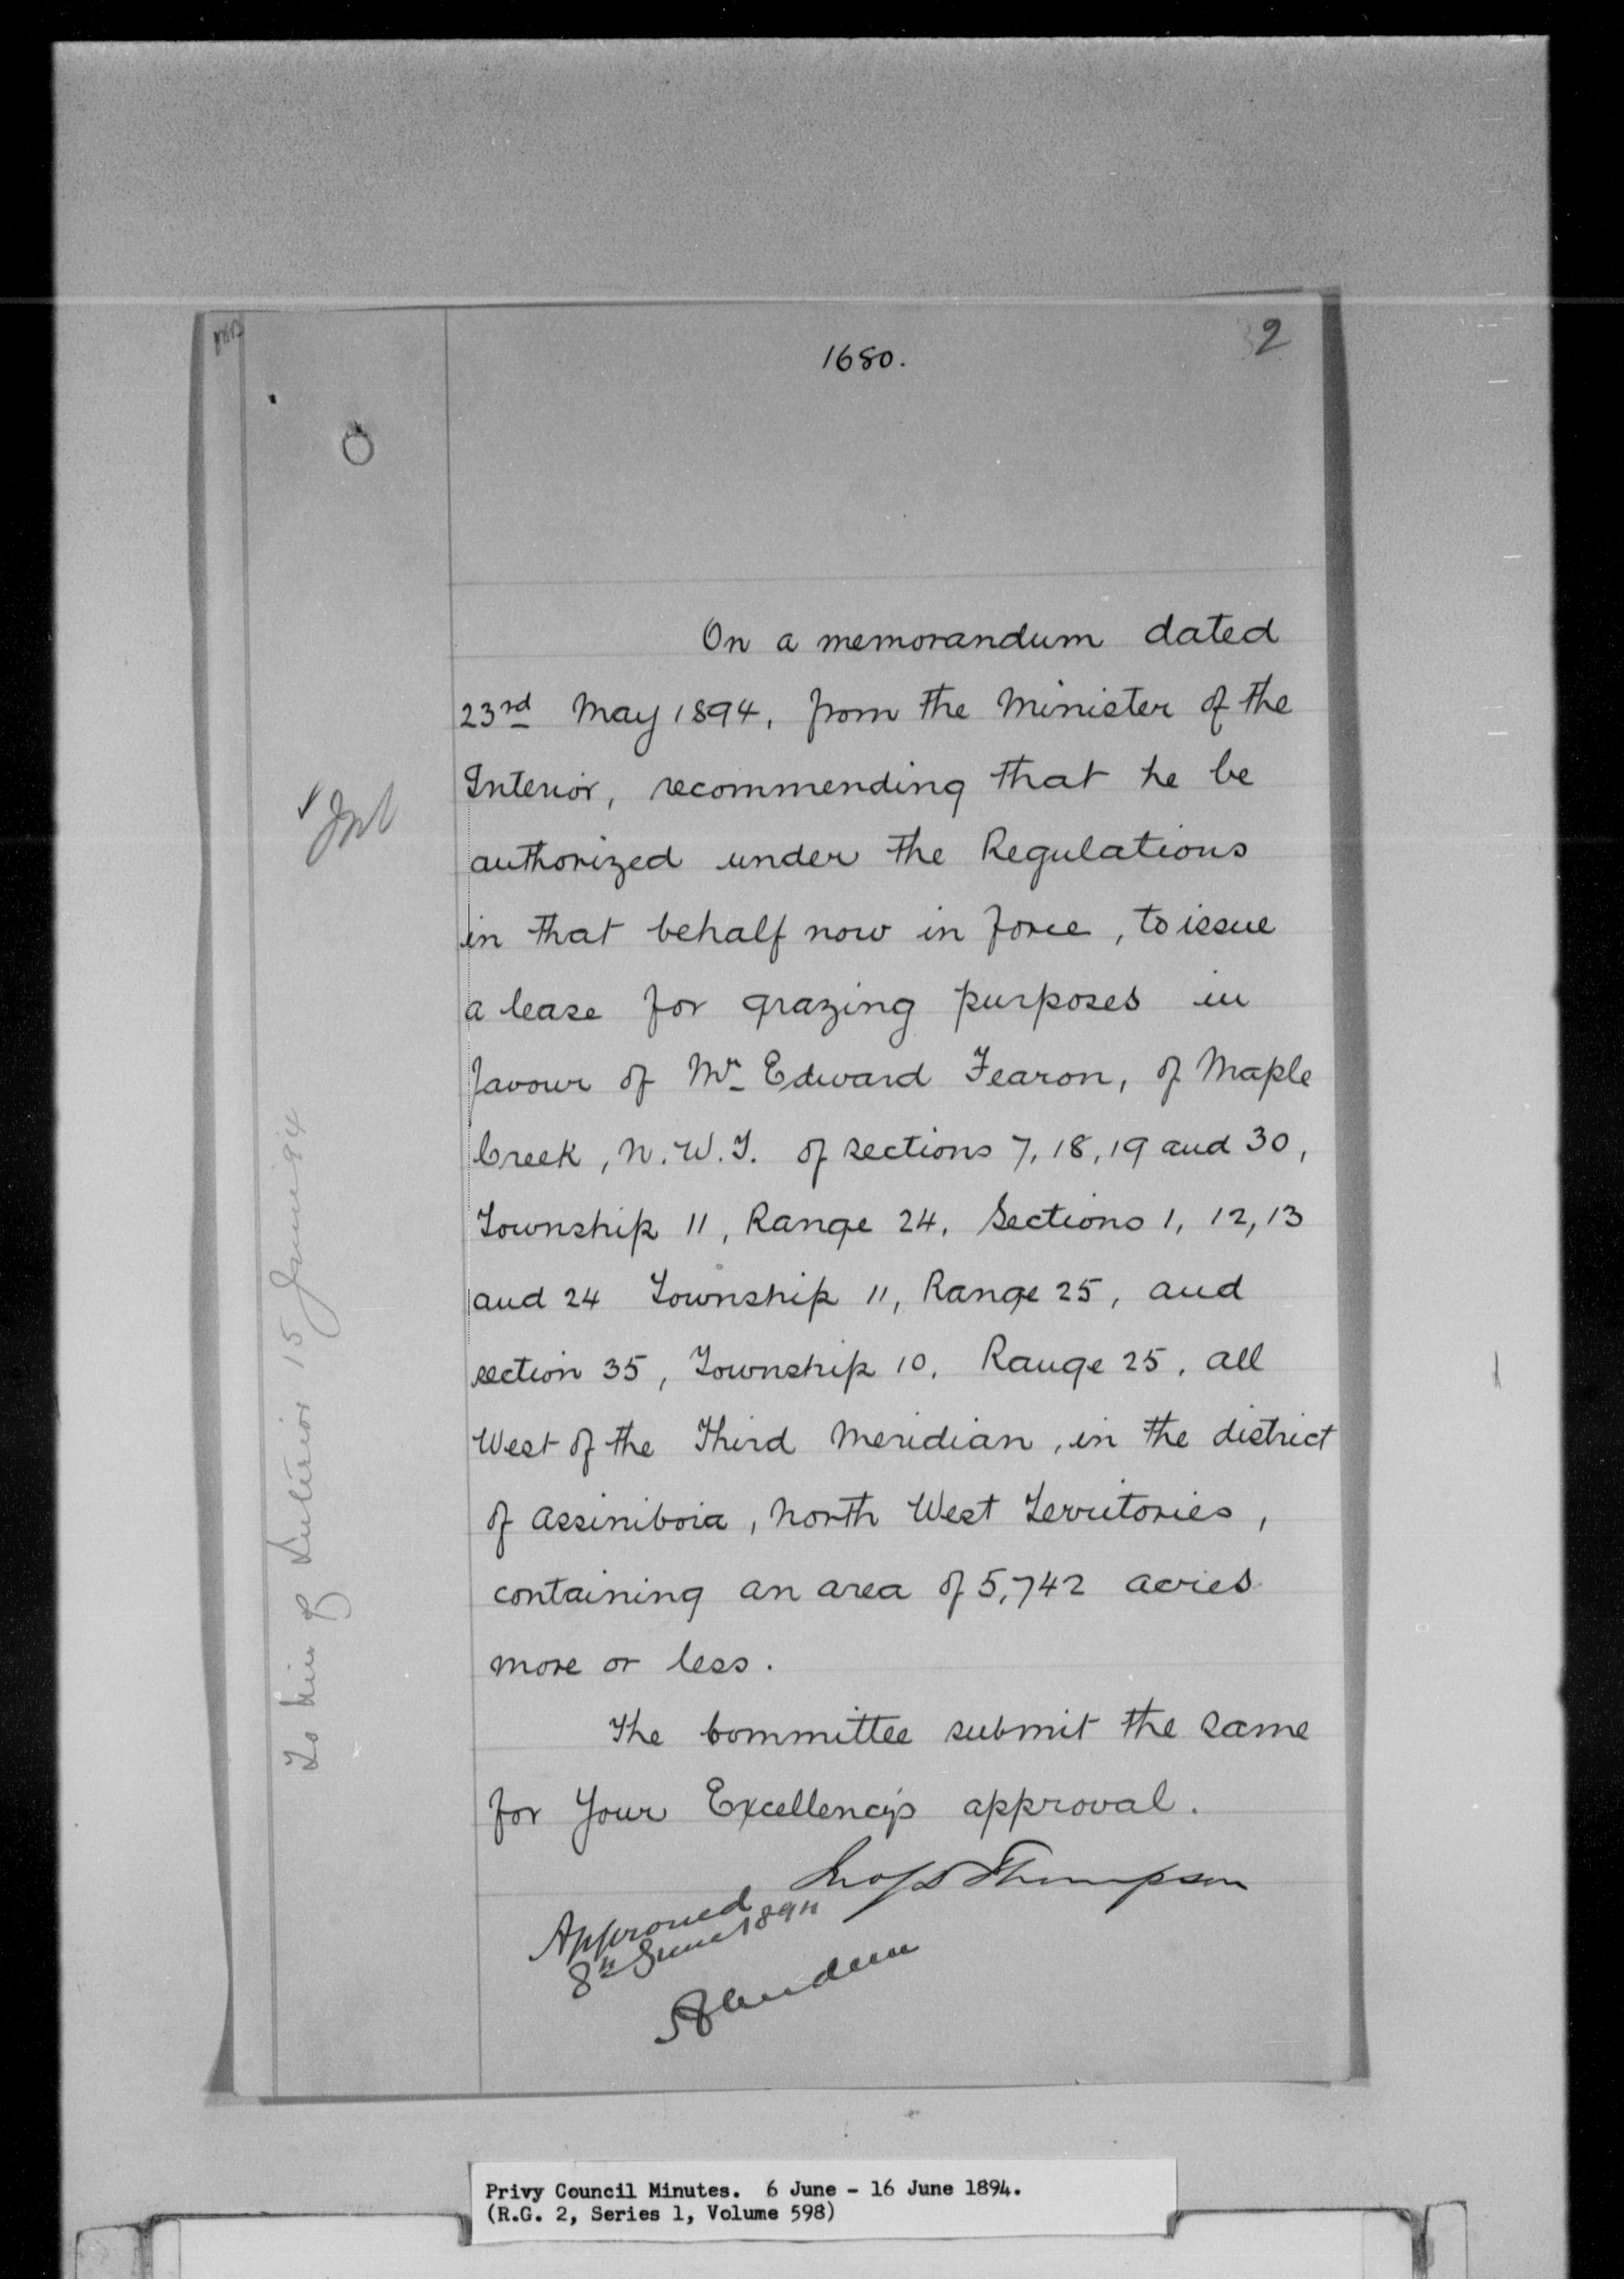 1680.
2
On a memorandum dated
23rd May 1894, from the Minister of the
Interior, recommending that he be
authorized under the Regulations
in that behalf now in force, to issue
a lease for grazing purposes in
favour of Mr Edward Fearon, of Maple
Creek, N.W.T. of sections 7, 18, 19 and 30,
Township 11, Range 24, Sections 1, 12, 13
and 24 Township 11, Range 25, and
section 35, Township 10, Range 25, all
West of the Third Meridian, in the district
of Assiniboia, North West Territories,
containing an area of 5,742 acres
more or less.
The Committee submit the same
for Your Excellency's approval.
Jno S D Thompson
Approved
8th June 1894
Aberdeen
Int
To Min of Interior 15 June 94
Privy Council Minutes. 6 June - 16 June 1894.
(R.G. 2, Series 1, Volume 598)